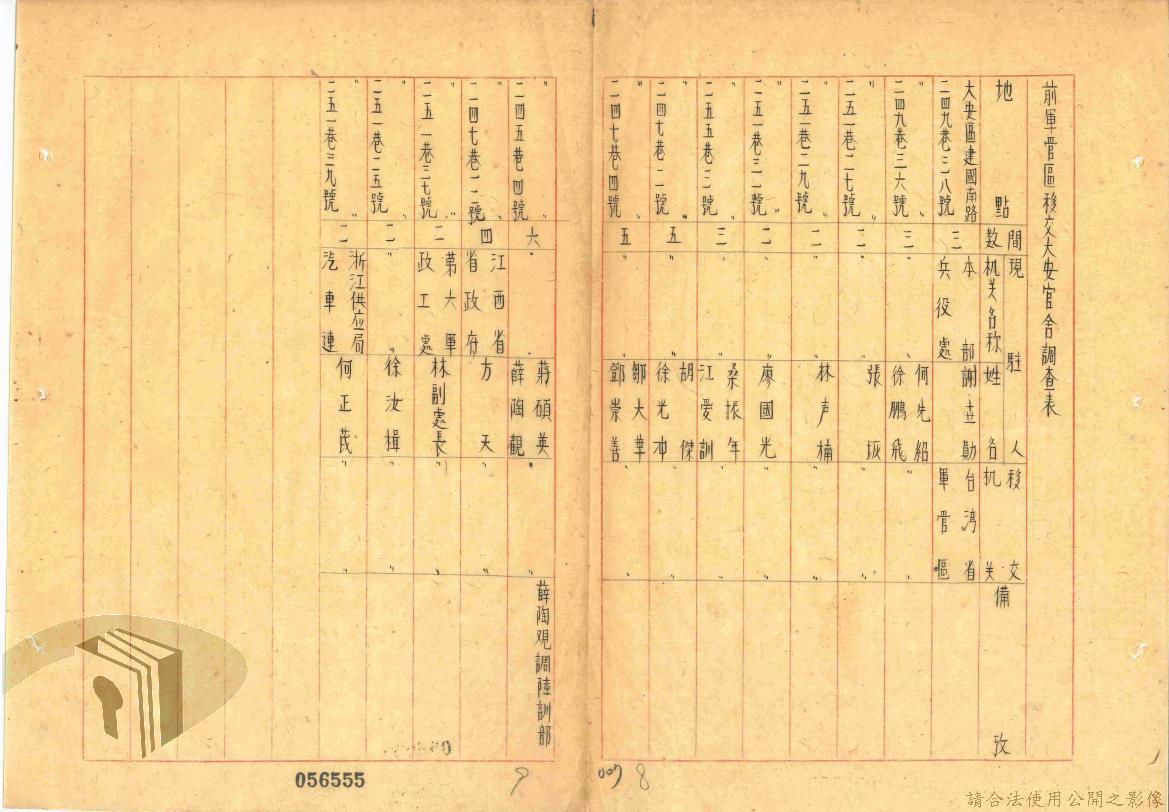 前軍管區移交大安官舍調查表
地點
間数
現駐人
机关名称
姓名
移交机关
備攷
大安區建國南路
二四九巷三八號
三
本部
兵役處
謝立勛
台湾省
軍管區
〃
二四九巷三六號
三
〃
何先紹
徐鵬飛
〃
〃
二五一巷二七號
二
〃
張
〃
〃
二五一巷二九號
二
〃
林声楠
〃
〃
二五一巷三一號
二
〃
廖國光
〃
〃
二五五巷三號
三
〃
桑振年
江愛訓
〃
〃
二四七巷二號
五
〃
胡傑
徐光冲
〃
〃
二四七巷四號
五
〃
鄒大華
鄧崇善
〃
〃
二四五巷四號
六
〃
蔣碩英
薛陶觀
〃
薛陶观調陸訓部
〃
二四七巷一二號
四
江西省
省政府
方天
〃
〃
二五一巷三七號
二
第六軍
政工處
林副處長
〃
〃
二五一巷二五號
二
〃
徐汝楫
〃
〃
二五一巷三九號
二
浙江供应局
汽車連
何正
〃
056555
9
007
8
請合法使用公開之影像